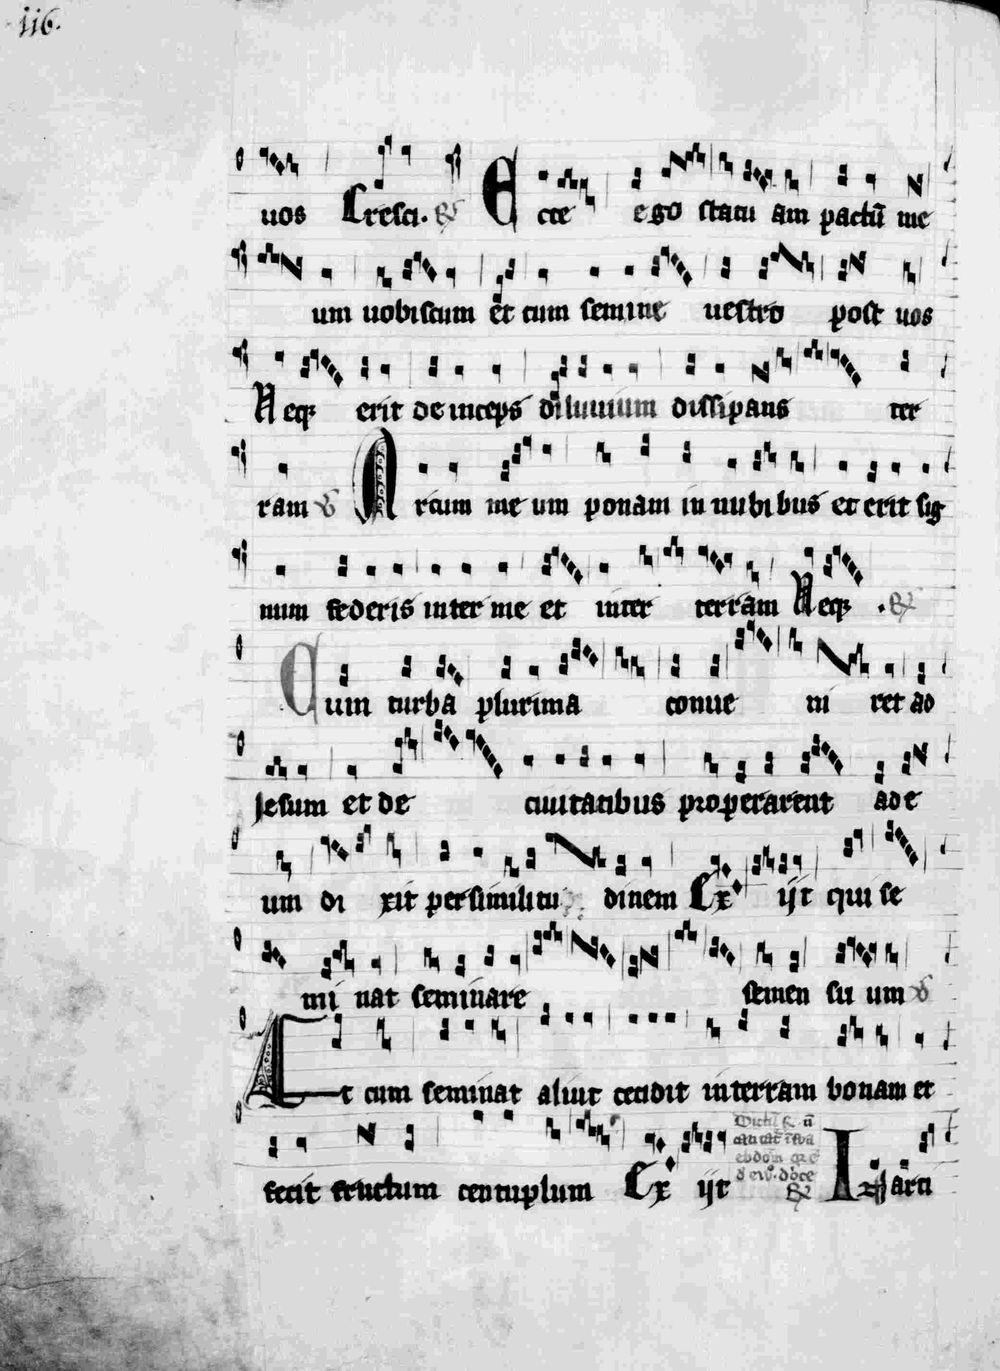 116.
uos Cresci. Ecce ego statu am pactū me
um uobiscum et cum semine uestro post uos
Neq erit deinceps diluuium dissipans ter
ram Arcum me um ponam in nubibus et erit sig
num federis inter me et inter terram Neq
Cum turba plurima conue ni ret ad
Jesum et de ciuitatibus properarent ad e
um di xit per similitu dinem Ex ijt qui se
mi nat seminare semen su um
Et cum seminat aliut cecidit in terram bonam et
fecit fructum centuplum Ex ijt Insarci